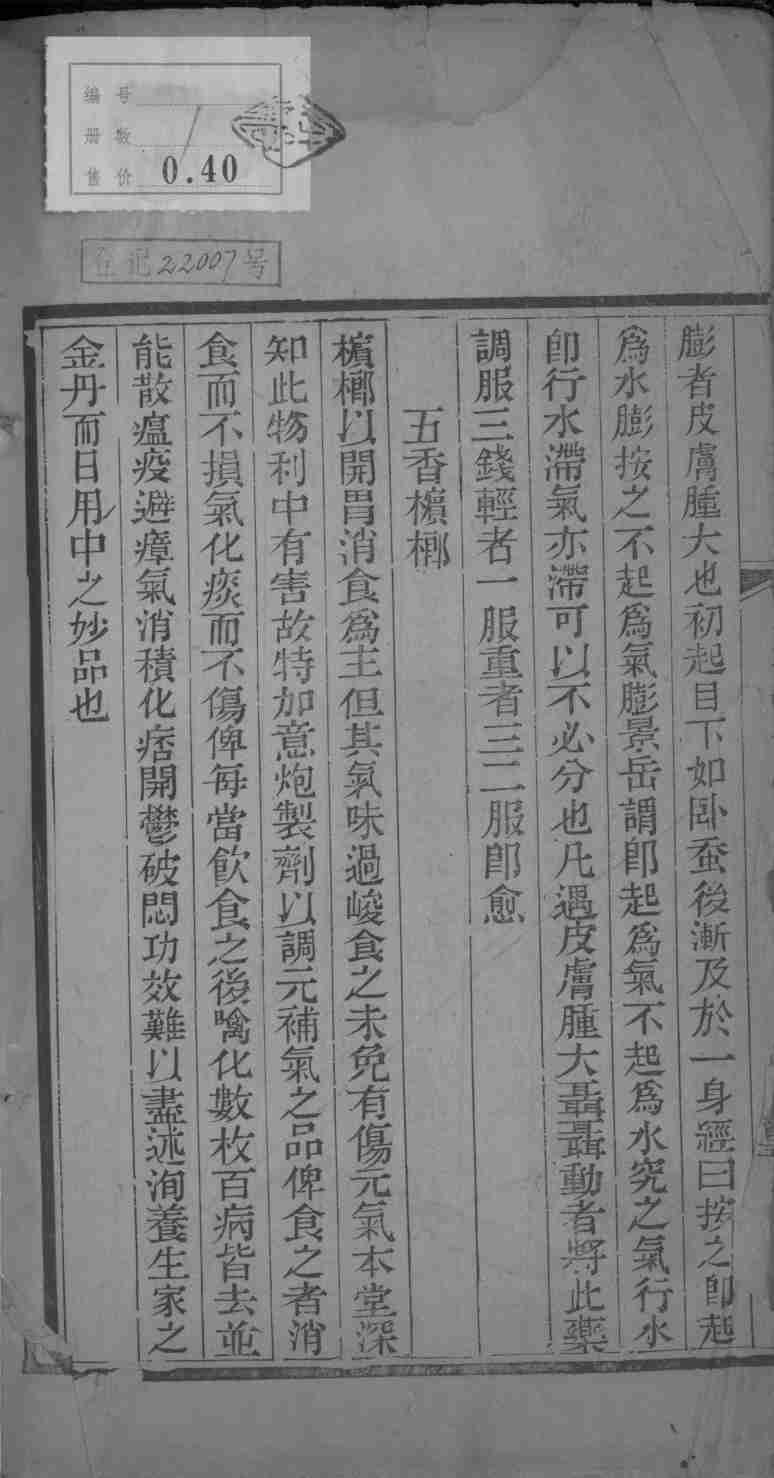 编号
册数 1
售价 0.40
登记22007号
膨者皮膚腫大也初起目下如卧蚕後漸及於一身經曰按之卽起
爲水膨按之不起爲氣膨景岳謂卽起爲氣不起爲水究之氣行水
卽行水滯氣亦滯可以不必分也凡遇皮膚腫大聶聶動者將此藥
調服三錢輕者一服重者三二服卽愈
五香檳榔
檳榔以開胃消食爲主但其氣味過峻食之未免有傷元氣本堂深
知此物利中有害故特加意炮製劑以調元補氣之品俾食之者消
食而不損氣化痰而不傷俾每當飲食之後噙化數枚百病皆去並
能散瘟疫避瘴氣消積化痞開鬱破悶功效難以盡述洵養生家之
金丹而日用中之妙品也